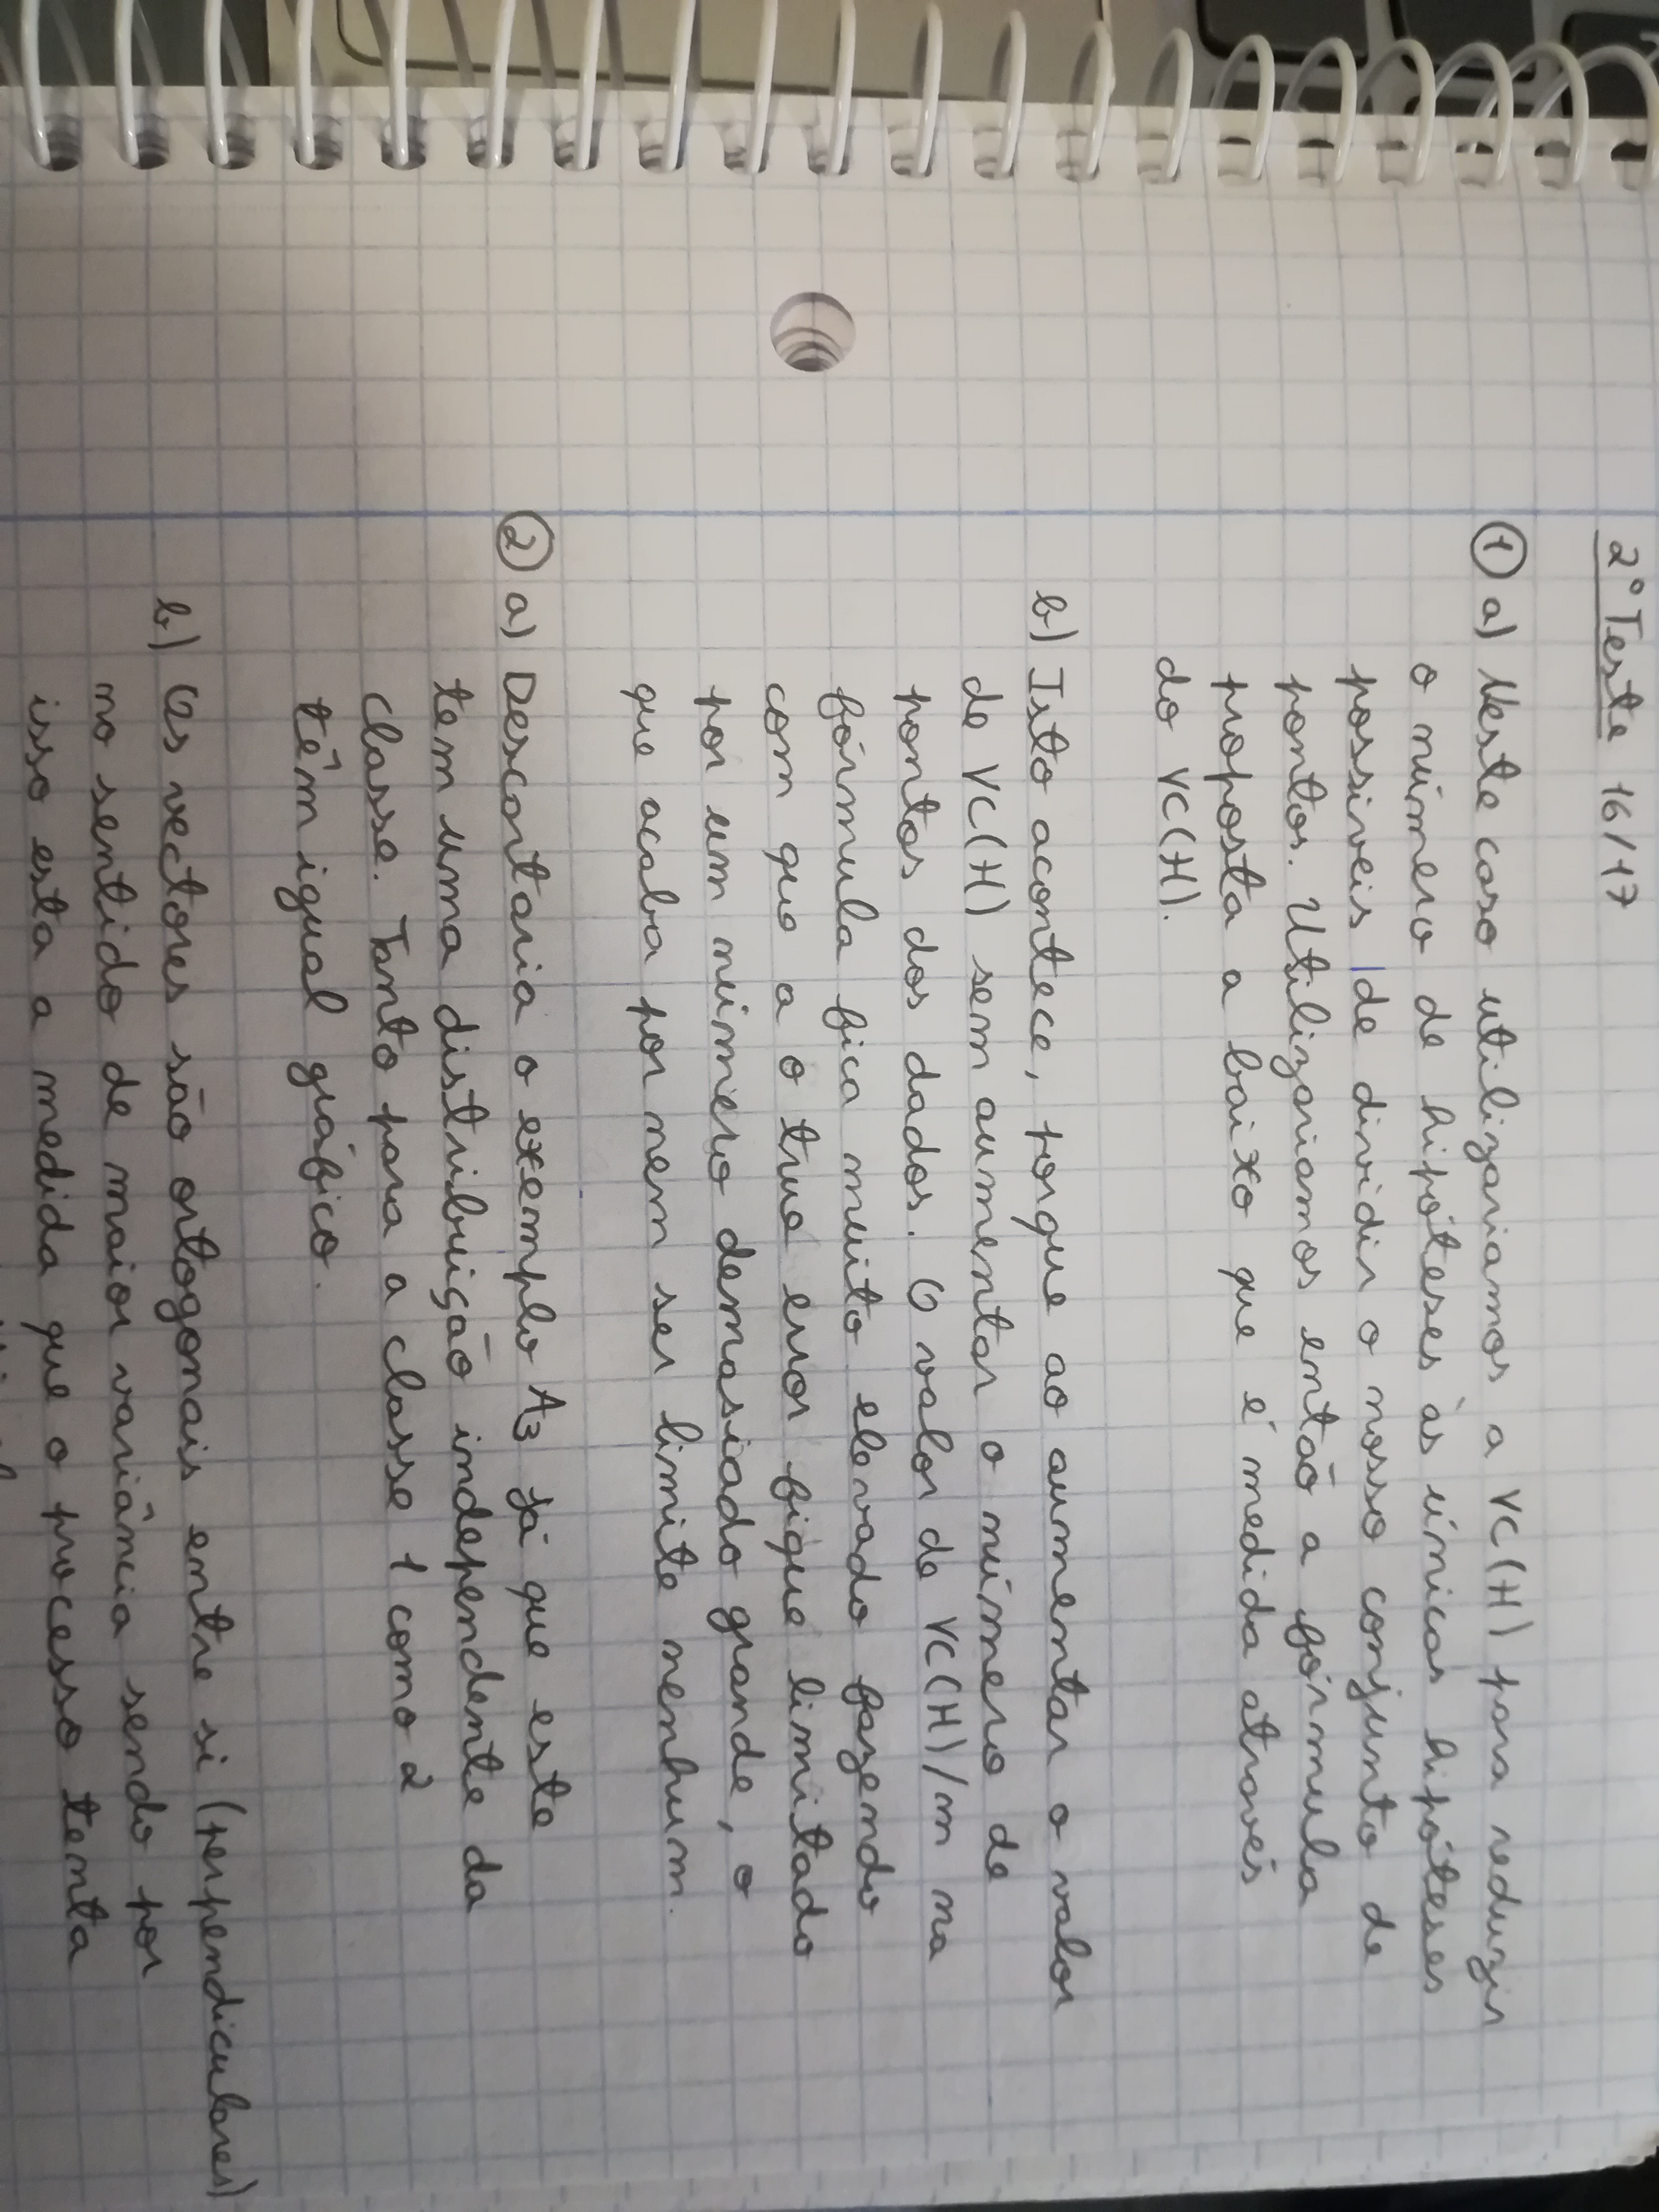 2º Teste 16/17
① a) Neste caso utilizariamos a VC(H) para reduzir
o número de hipóteses às únicas hipóteses
possiveis de dividir o nosso conjunto de
pontos. Utilizariamos então a fórmula
proposta a baixo que é medida através
do VC(H).
b) Isto acontece, porque ao aumentar o valor
de VC(H) sem aumentar o número de
pontos dos dados. O valor de VC(H)/m na
fórmula fica muito elevado fazendo
com que a o true error fique limitado
por um número demasiado grande, o
que acaba por nem ser limite nenhum.
② a) Descartaria o exemplo A3 já que este
tem uma distribuição independente da
classe. Tanto para a classe 1 como 2
têm igual gráfico.
b) Os vectores são ortogonais entre si (perpendiculares)
no sentido de maior variância sendo por
isso esta a medida que o processo tenta